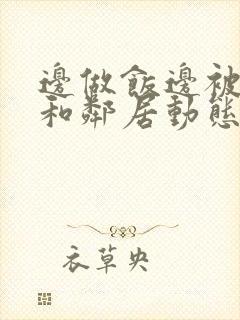 邊做飯邊被
和鄰居動態
衣草央